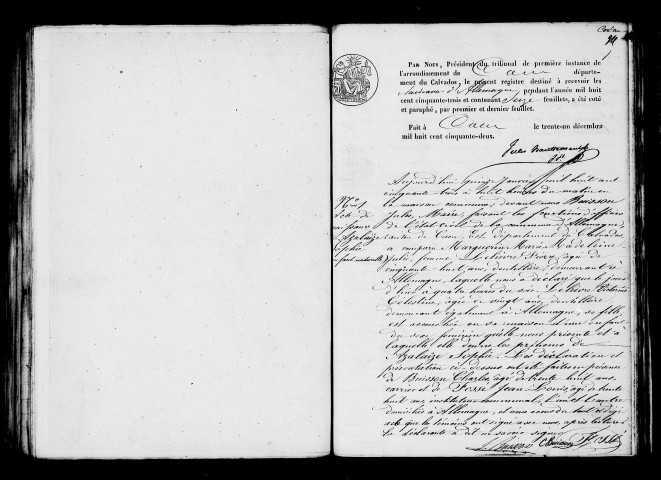 PAR NOUS, Président du tribunal de première instance de
l'arrondissement de Caen départe-
ment du Calvados, le présent registre destiné à recevoir les
d'Allemagne, pendant l'année mil huit
cent cinquante-trois et contenant Seize feuillets, a été coté
et paraphé, par premier et dernier feuillet.
Fait à Caen le trente-un décembre
mil huit cent cinquante-deux.
Aujourd'hui quinze Janvier mil huit cent
cinquante trois à huit heures du matin en
la maison commune, devant nous Buisson
Jules, Maire, faisant les fonctions d'officier
de l'état civil de la commune d'Allemagne,
canton de Caen Est département du Calvados
a comparu Marguerin Marie Madeleine
Julie femme Lelièvre âgée de
cinquante huit ans, dentellière, demeurant à
Allemagne, laquelle nous a déclaré que le jour
d'hier à quatre heures du soir Lelièvre
Célestine, âgée de vingt ans, dentellière
demeurant également à Allemagne, sa fille
est accouchée en sa maison d'une enfant
du sexe féminin qu'elle nous présente et à
laquelle elle donne les prénoms de
Azalaïze Sophie. Les déclaration et
présentation ci-dessus ont été faites en présence
de Buisson Charles, âgé de trente huit ans
carrier et de Fosse Jean Louis, âgé de trente
huit ans instituteur communal, l'un et l'autre
domiciliés à Allemagne, et nous avons du tout rédigé
acte que les témoins ont signé avec nous, après lecture
la déclarante a dit ne savoir signer
J. Buisson C Buisson Fosse
N° 1
Acte de
naissance
Azalaïze
Sophie